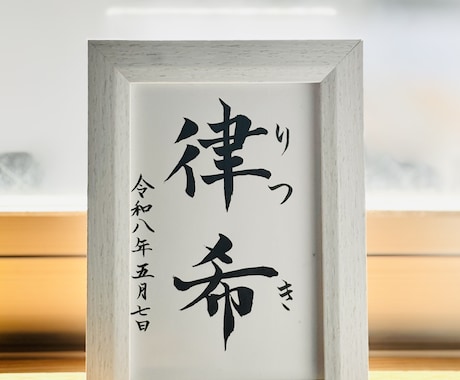 りつき
律希
令和八年五月七日